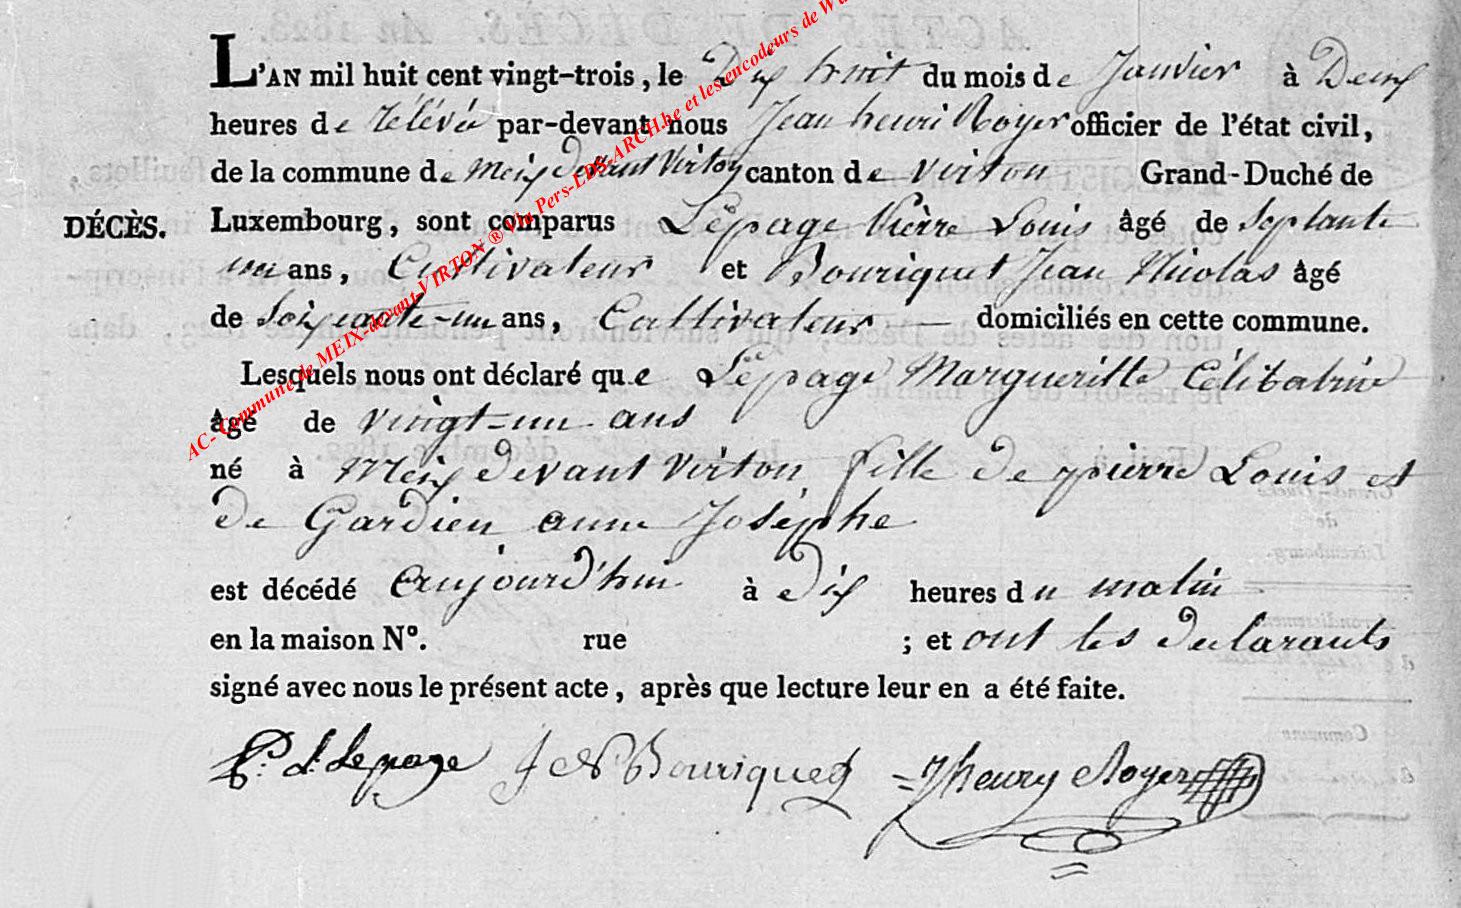 L'AN mil huit cent vingt-trois, le Dix huit du mois de Janvier à Deux
heures de rélévée par-devant nous Jean henri Royer officier de l'état civil,
de la commune de Meix devant Virton canton de Virton Grand-Duché de
DÉCÈS. Luxembourg, sont comparus Lépage Pièrre Louis âgé de Septante
un ans, Cultivateur et Bouriquet Jean Nicolas âgé
de Soixante-un ans, Cultivateur — domiciliés en cette commune.
Lesquels nous ont déclaré que Lépage Margueritte Célibataire
âgé de vingt-un ans
né à Meix devant Virton fille de pierre Louis et
de Gardien anne Joséphe
est décédé aujourd'hui à dix heures du matin
en la maison N°. rue ; et ont les declarants
signé avec nous le présent acte, après que lecture leur en a été faite.
P. L. Lepage J N Bouriquet Jhenry Royer
AC- Commune de MEIX-devant-VIRTON ® Via Pers-LDS-ARCH.be et les encodeurs de